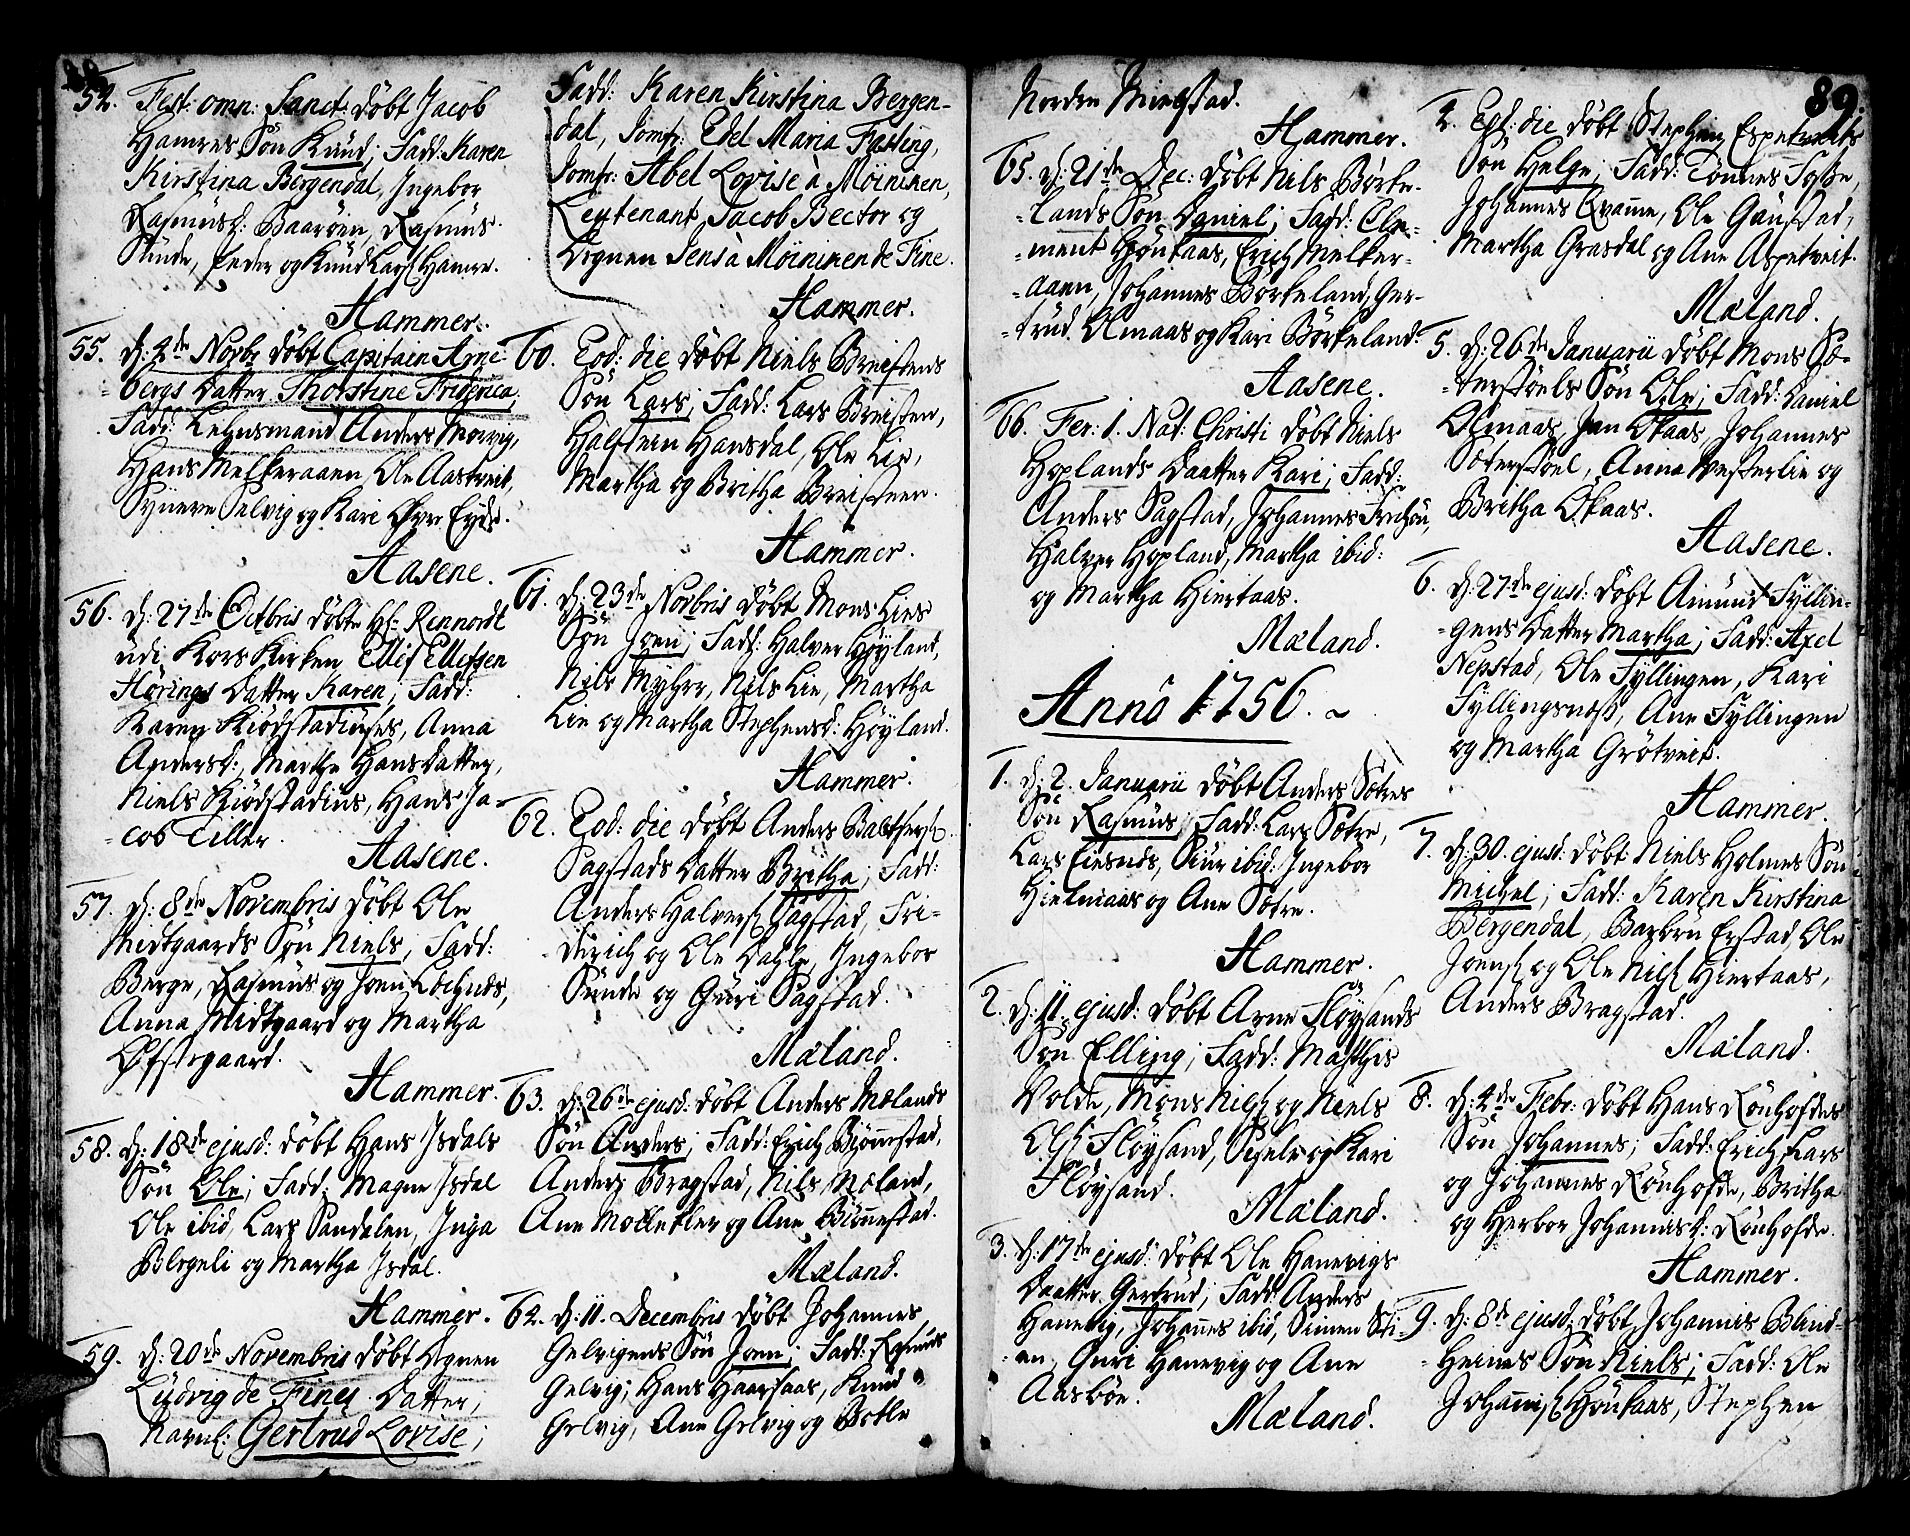 54. Fest: omn: Sanct: döbt Jacob
Hamres Sön Knud; Fadd: Karen
Kirstina Bergendal, Ingebor
Rasmusd: Baaröen, Rasmus
Stunde, Peder og Knud Lars. Hamre.
Hammer.
55. d: 4de Novbr döbt Capitain Arne-
bergs Datter Thorstine Friderica;
Fadd: Lehnsmand Anders Morvig,
Hans Melkeraaen, Ole Aastveit,
Synneve Selvig og Kari Øyre Eyde.
Aasene.
56. d: 27de Octbris döbte Hr. Rennordt
udi Kors Kirken Ellef Ellefsen
Hörings Datter Karen; Fadd:
Karen Kiödstadiuses, Anna
Andersd:, Marthe Hans datter,
Niels Kiödstadius, Hans Ja-
cob Tiller.
Aasene.
57. d: 8de Novembris döbt Ole
Midtgaards Sön Niels; Fadd:
Berge, Rasmus og Joen Löchnds,
Anna Midtgaard og Martha
Øfstegaard.
Hammer.
58. d: 18de ejusd: döbt Hans Isdals
Sön Ole; Fadd: Magne Isdal
Ole ibid, Lars Sandalen, Inga
Blegeli og Martha Isdal.
Hammer.
59. d: 20de Novembris döbt Degnen
Ludvig de Fines Datter,
Navnl: Gertrud Lovise;
Fadd: Karen Kirstina Bergen-
dal, Jomfr: Edel Maria Fasting,
Jomfr: Abel Lovise à Möininen,
Leutenant Jacob Bector og
Degnen Jens à Möininen de Fine.
Hammer.
60. Eod: die döbt Niels Breistens
Sön Lars; Fadd: Lars Breisten,
Halsteen Hansdal, Ole Lie,
Martha og Britha Breisteen.
Hammer.
61. d: 23de Novbris döbt Mons Lies
Sön Joen; Fadd: Halver Höyland,
Nils Myhre, Nils Lie, Martha
Lie og Martha Stephensd: Höyland.
Hammer.
62. Eod: die döbt Anders Balthers.
Sagstads Datter Britha; Fadd:
Anders Halvers. Sagstad, Fri-
derich og Ole Dahle, Ingebor
Sunde og Guri Sagstad.
Mæland.
63. d: 26de ejusd: döbt Anders Mælands
Sön Anders; Fadd: Erich Biönnestad,
Anders Bragstad, Nils Mæland,
Ane Molletler og Ane Biönnestad.
Mæland.
64. d: 11. Decembris döbt Johannes
Gelvigens Sön Joen; Fadd: Rasmus
Gelvig, Hans Haarsaas, Knud
Gelvig, Ane Gelvig og Botle
Norden Mielstad.
Hammer.
65. d: 21de Dec: döbt Nils Börke-
lands Sön Daniel; Fadd: Cle-
ment Houkaas, Erich Melker-
aaen, Johannes Börkeland, Ger-
trud Olmaas og Kari Börkeland.
Aasene.
66. Fer: 1. Nat: Christi döbt Niels
Hoplands Daatter Kari; Fadd:
Anders Sagstad, Johannes
Halver Hopland, Martha ibid:
og Martha Hiertaas.
Mæland.
Anno 1756.
1. d: 2. Januarii döbt Anders Sætres
Sön Rasmus; Fadd: Lars Sætre,
Lars Eiesnds, Siur ibid: Ingebor
Hielmaas og Ane Sætre.
Hammer.
2. d: 11. ejusd: döbt Arne Flöysands
Sön Elling; Fadd: Mathis
Volde, Mons Niels. og Niels
Ols. Flöysand, Siselv og Kari
Flöysand.
Mæland.
3. d: 17de ejusd: döbt Ole Hanevigs
Daatter Gertrud; Fadd: Anders
Hanevig, Johannes ibid, Simen Sti-
en, Guri Hanevig og Ane
Aasböe.
Mæland.
89.
4. Eod: die döbt Stephen Espetveits
Sön Helge; Fadd: Tönnes Fosse,
Johannes Qvamme, Ole Gaustad,
Martha Grasdal og Ane Aspetveit.
Mæland.
5. d: 26de Januarii döbt Mons Sæ-
terstöels Sön Ole; Fadd: Daniel
Olmaas, Jan Økaas, Johannes
Sæterstöel, Anna Vesterlie og
Britha Økaas.
Aasene.
6. d: 27de ejusd: döbt Amund Fyllin-
gens Datter Martha; Fadd: Axel
Nepstad, Ole Fyllingen, Kari
Fyllingsnæss, Ane Fyllingen
og Martha Grötveit.
Hammer.
7. d: 30. ejusd: döbt Niels Holmes Sön
Michel; Fadd: Karen Kirstina
Bergendal, Barbru Erstad, Ole
Joens. og Ole Niels. Hiertaas,
Anders Bragstad.
Mæland.
8. d: 4de Febr: döbt Hans Rönhofdes
Sön Johannes; Fadd: Erich, Lars
og Johannes Rönhofde, Britha
og Herbor Johannisd: Rönhofde.
Hammer.
9. d: 8de ejusd: döbt Johannis Blind-
heimes Sön Niels; Fadd: Ole
Johannis. Houkaas, Stephen